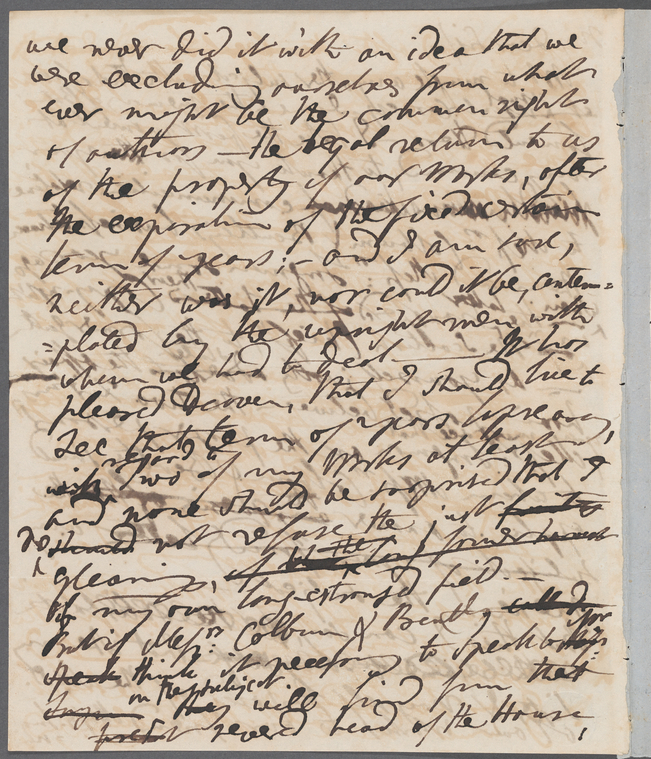 we never did it with an idea that we
were excluding ourselves from what
ever might be the common rights
of authors — the legal return to us
of the property of our Works, after
the expiration of the fixed certain
term of years; – and I am sure,
neither was it, nor could it be, contem=
=plated by the upright men with
whom we had to deal — It has
pleased Heaven, that I should live to
see that term of years expire away,
with regard to two of my Works at least
and none should be surprised that I
do should not refuse the just
gleaning, of the former harvest
of my own long-estranged field. —
But if Messrs. Colburn & Bentley
think it necessary to speak
on the subject they will find from that
revered head of the House,